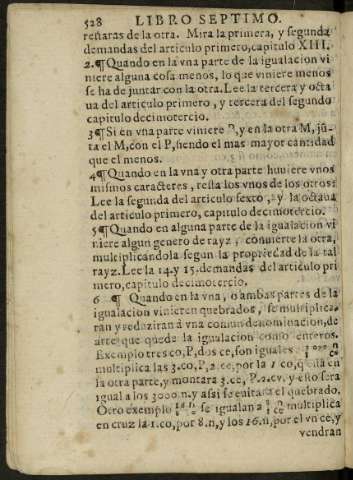 528 LIBRO SEPTIMO.
reñaras de la otra. Mira la primera, y segunda
demandas del articulo primero, capitulo XIII.
2.¶ Quando en la vna parte de la igualacion vi
niere alguna cosa menos, lo que viniere menos
se ha de juntar con la otra. Lee la tercera y octa
ua del articulo primero, y tercera del segundo
capitulo decimotercio.
3 ¶ Si en vna parte viniere P, y en la otra M, jũ-
ta el M, con el P, siendo el mas mayor cantidad
que el menos.
4 ¶ Quando en la vna y otra parte huuiere vnos
mismos caracteres, resta los vnos de los otros:
Lee la segunda del articulo sexto, y la octaua
del articulo primero, capitulo decimotercio.
5 ¶ Quando en alguna parte de la igualacion vi
niere algun genero de rayz, conuierte la otra,
multiplicandola segun la propriedad de la tal
rayz. Lee la 14. y 15. demandas del articulo pri
mero, capitulo decimotercio.
6 ¶ Quando en la vna, o ambas partes de la
igualacion vinieren quebrados, se multiplica-
ran y reduziran à vna comun denominacion, de
arte que quede la igualacion como enteros.
Exemplo tres co, P, dos ce, son iguales
multiplica las 3. co, P, 2. ce, por la 1 co, q̃ está en
la otra parte, y montara 3. ce, P. 2. cu. y esto sera
igual a los 3000. n. y assi se euitara el quebrado.
Otro exemplo se igualan a multiplica
en cruz la 1. co, por 8. n, y los 16. n, por el vn ce, y
vendran